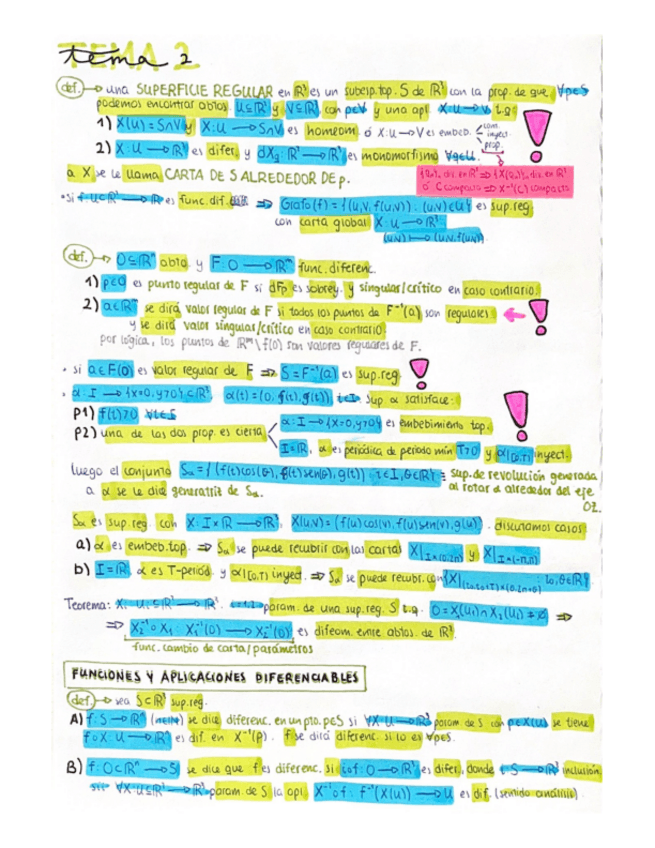 TEMA 2
tema 2
def. → una SUPERFICIE REGULAR en ℝ³ es un subesp. top. S de ℝ³ con la prop. de que, ∀p∈S
podemos encontrar abtos. U⊆ℝ² y V⊆ℝ³, con p∈V y una apl. X:U→V t.q.
1) X(U)=S∩V y X:U→S∩V es homeom. ó X:U→V es embeb. cont. inyect. prop.
2) X:U→ℝ³ es difer. y dXq:ℝ²→ℝ³ es monomorfismo ∀q∈U.
a X se le llama CARTA DE S ALREDEDOR DE p.
ó C compacto ⇒ X⁻¹(C) compacto
• Si f:U⊂ℝ²→ℝ es func. dif. ⇒ Grafo(f) = {(u,v,f(u,v)) : (u,v)∈U} es sup. reg.
con carta global X:U→ℝ³
(u,v)↦(u,v,f(u,v))
def. → O⊆ℝⁿ abto. y F:O→ℝᵐ func. diferenc.
1) p∈O es punto regular de F si dFp es sobrey. y singular/crítico en caso contrario.
2) a∈ℝᵐ se dirá valor regular de F si todos los puntos de F⁻¹(a) son regulares ←
y se dirá valor singular/crítico en caso contrario.
por lógica, los puntos de ℝᵐ\f(O) son valores regulares de F.
• si a∈F(O) es valor regular de F ⇒ S=F⁻¹(a) es sup. reg.
• α:I→{x=0,y>0}⊂ℝ³, α(t)=(0,f(t),g(t)) t∈I. Sup α satisface:
P1) f(t)>0 ∀t∈I
P2) una de las dos prop. es cierta
α:I→{x=0,y>0} es embebimiento top.
I=ℝ, α es periódica de periodo mín T>0 y α|[0,T) inyect.
luego el conjunto Sα={(f(t)cos(θ), f(t)sen(θ), g(t)) t∈I,θ∈ℝ} ≡ sup. de revolución generada
a α se le dice generatriz de Sα. al rotar α alrededor del eje
OZ.
Sα es sup. reg. con X:I×ℝ→ℝ³, X(u,v)=(f(u)cos(v), f(u)sen(v), g(u)). discutamos casos:
a) α es embeb. top. ⇒ Sα se puede recubrir con las cartas X|I×(0,2π) y X|I×(-π,π)
b) I=ℝ, α es T-periód. y α|[0,T) inyect. ⇒ Sα se puede recubr. con
Teorema: Xᵢ:Uᵢ⊆ℝ²→ℝ³, i=1,2 param. de una sup. reg. S t.q. O=X₁(U₁)∩X₂(U₂)≠∅ ⇒
⇒ X₂⁻¹∘X₁ : X₁⁻¹(O)→X₂⁻¹(O) es difeom. entre abtos. de ℝ².
func. cambio de carta/parámetros
FUNCIONES Y APLICACIONES DIFERENCIABLES
def. → sea S⊂ℝ³ sup. reg.
A) f:S→ℝⁿ (n∈ℕ) se dice diferenc. en un pto. p∈S si ∀X:U→ℝ³ param de S con p∈X(U) se tiene
f∘X:U→ℝⁿ es dif. en X⁻¹(p). f se dirá diferenc. si lo es ∀p∈S.
B) f:O⊂ℝⁿ→S se dice que f es diferenc. si i∘f:O→ℝ³ es difer, donde i:S→ℝ³ inclusión.
sii ∀X:U⊆ℝ²→ℝ³ param. de S la apl. X⁻¹∘f : f⁻¹(X(U))→U es dif. (sentido análisis).